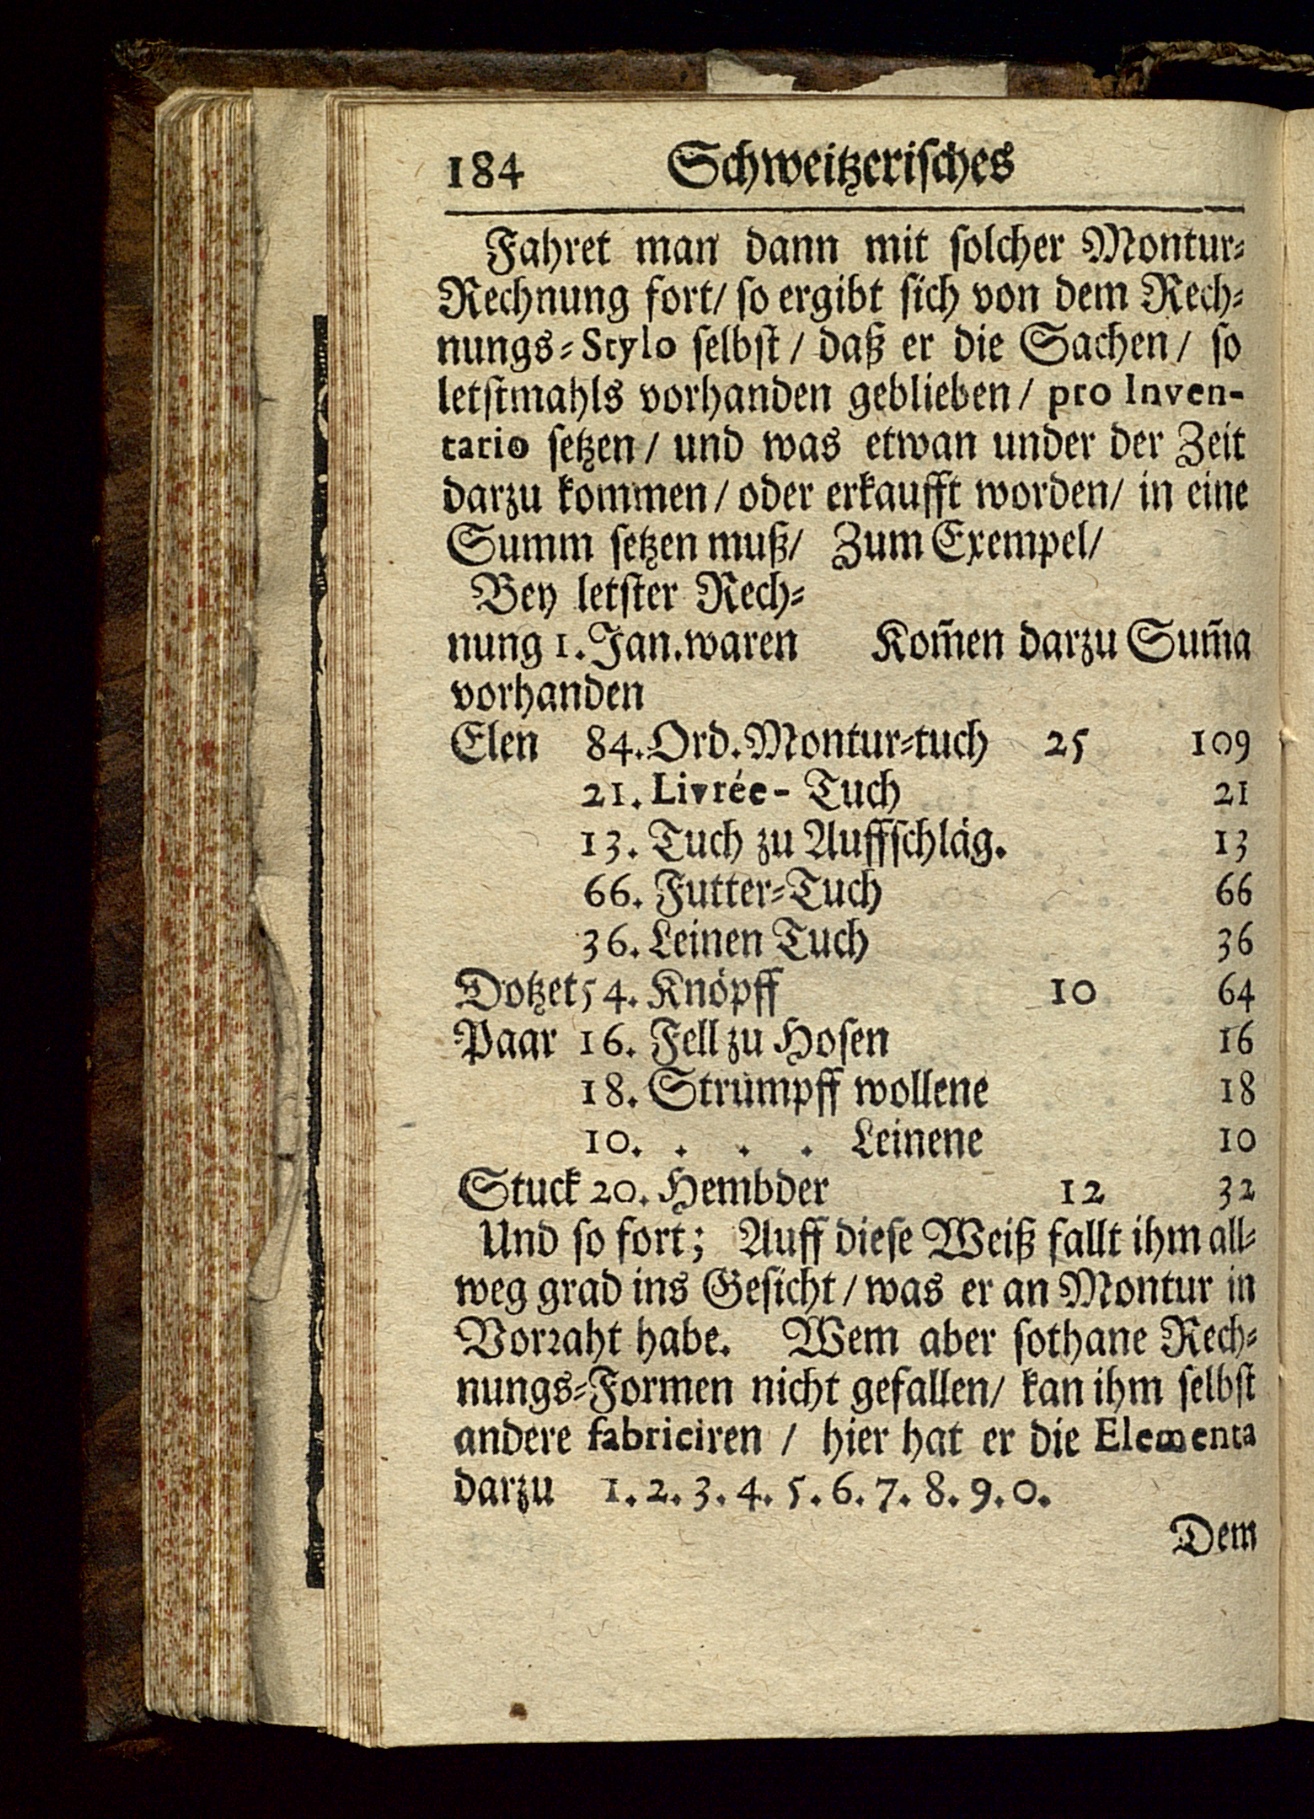 184 Schweitzerisches
Fahret man dann mit solcher Montur-
Rechnung fort/ so ergibt sich von dem Rech-
nungs-Stylo selbst / daß er die Sachen / so
letstmahls vorhanden geblieben / pro Inven-
tario setzen / und was etwan under der Zeit
darzu kommen / oder erkaufft worden/ in eine
Summ setzen muß/ Zum Exempel/
Bey letster Rech-
nung 1. Jan. waren Kom̃en darzu Sum̃a
vorhanden
Elen 84. Ord. Montur-tuch 25 109
21. Livrée-Tuch 21
13. Tuch zu Auffschläg. 13
66. Futter-Tuch 66
36. Leinen Tuch 36
Dotzet 54. Knöpff 10 64
Paar 16. Fell zu Hosen 16
18. Strümpff wollene 18
10. . . . Leinene 10
Stuck 20. Hembder 12 32
Und so fort; Auff diese Weiß fallt ihm all-
weg grad ins Gesicht / was er an Montur in
Vorraht habe. Wem aber sothane Rech-
nungs-Formen nicht gefallen/ kan ihm selbst
andere fabriciren / hier hat er die Elementa
darzu 1. 2. 3. 4. 5. 6. 7. 8. 9. 0.
Dem